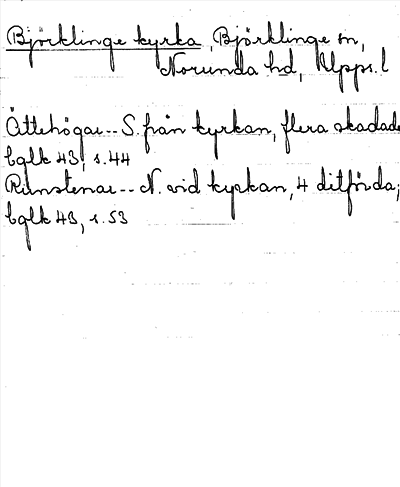 Björklinge kyrka, Björklinge sn,
Norunda hd, Upps. l
Ättehögar -- S. från kyrkan, flera skadade
bglk 43, s. 44
Runstenar -- N. vid kyrkan, 4 ditförda;
bglk 43, s. 53